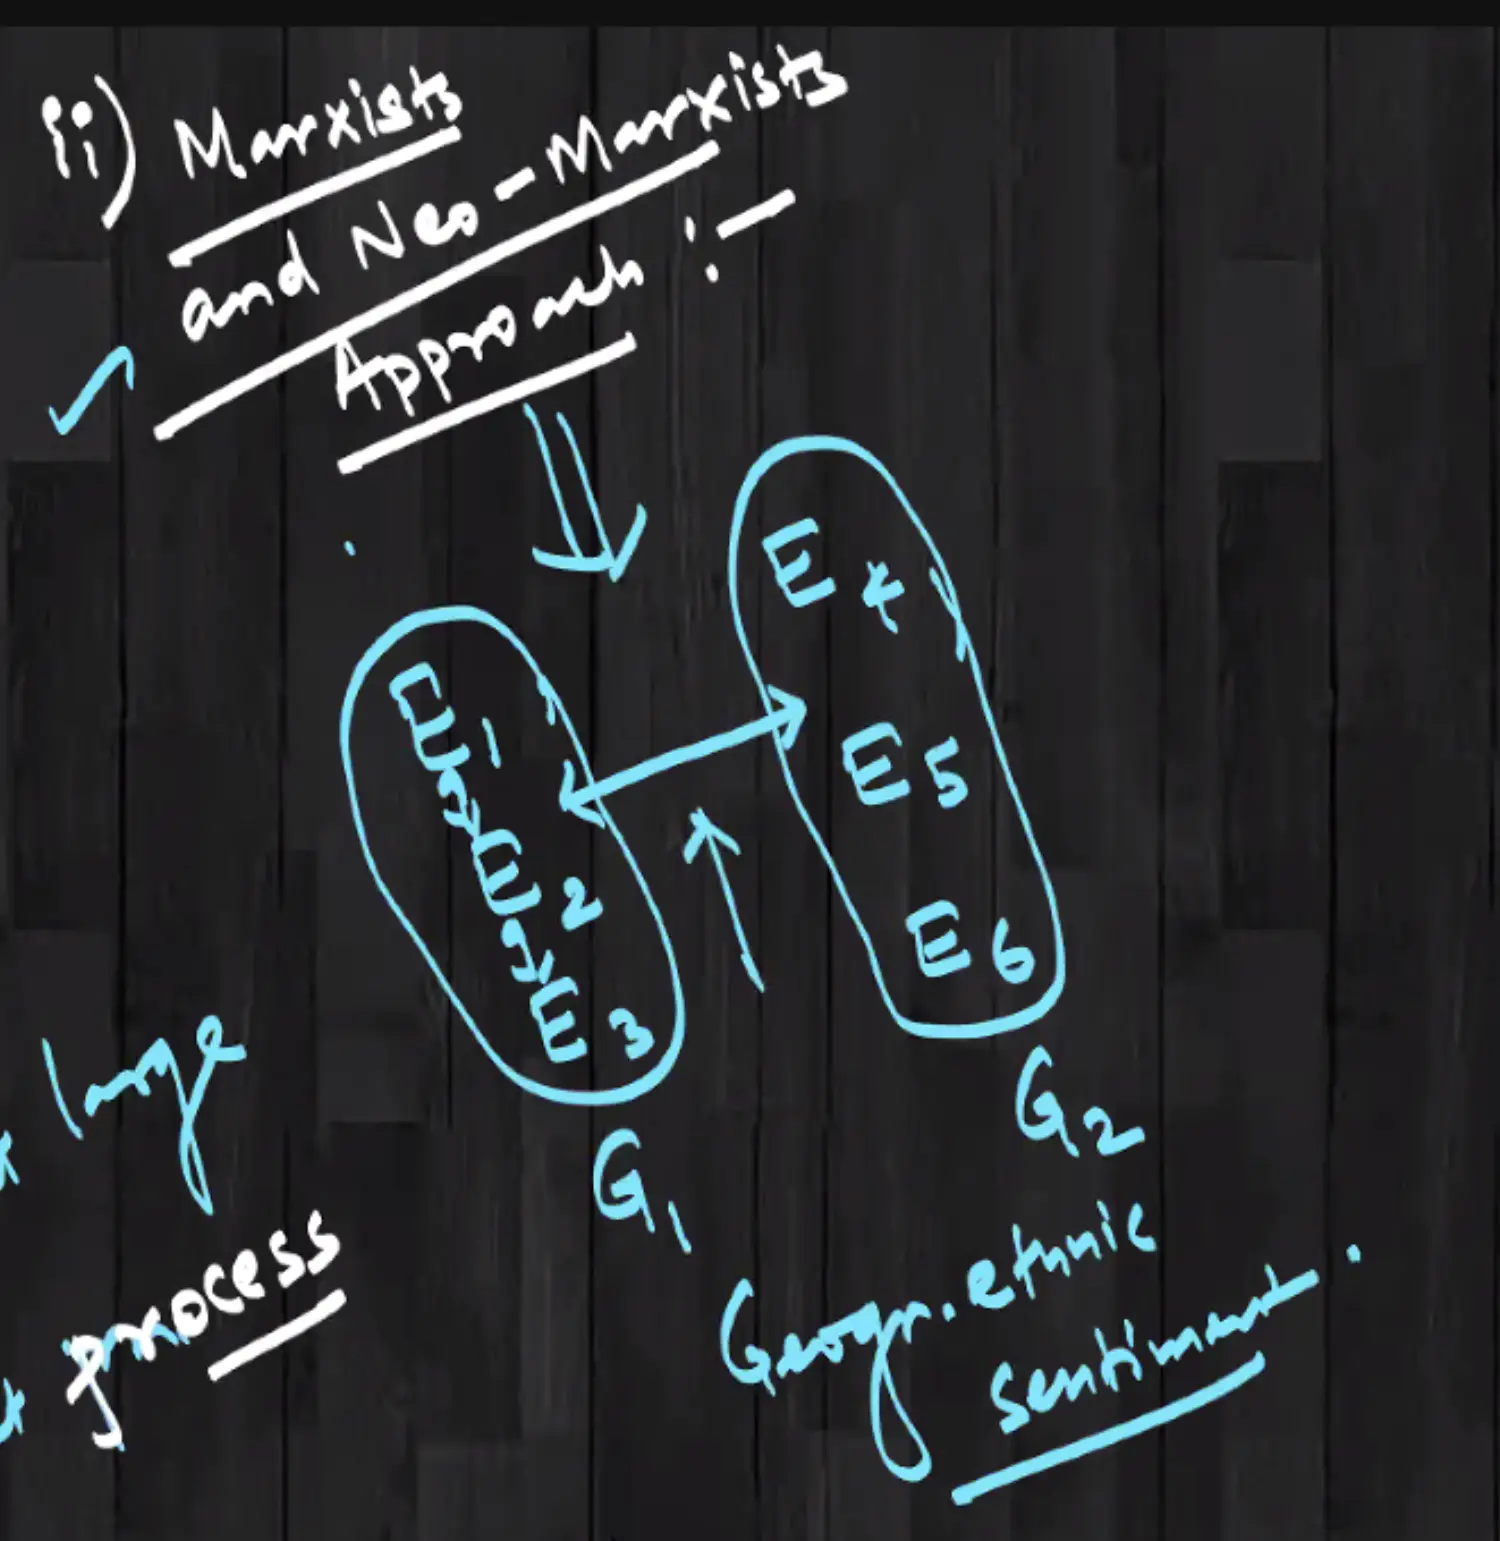 ii) Marxists
and Neo-Marxists
Approach :-
E 4
E 1
E 5
E 2
E 6
E 3
large
G2
G1
process
Geogr. ethnic
sentiment.